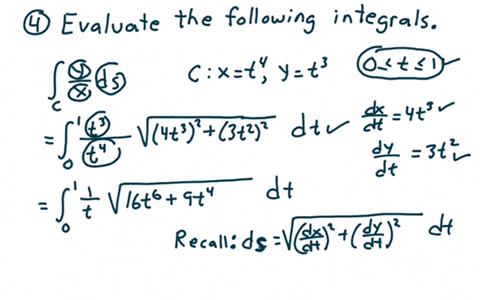 ④ Evaluate the following integrals.
∫_C (y/x) ds C: x=t⁴, y=t³ 0≤t≤1 ✓
= ∫₀¹ (t³/t⁴) √((4t³)²+(3t²)²) dt ✓ dx/dt = 4t³ ✓
dy/dt = 3t² ✓
= ∫₀¹ (1/t) √(16t⁶+9t⁴) dt
Recall: ds = √((dx/dt)²+(dy/dt)²) dt